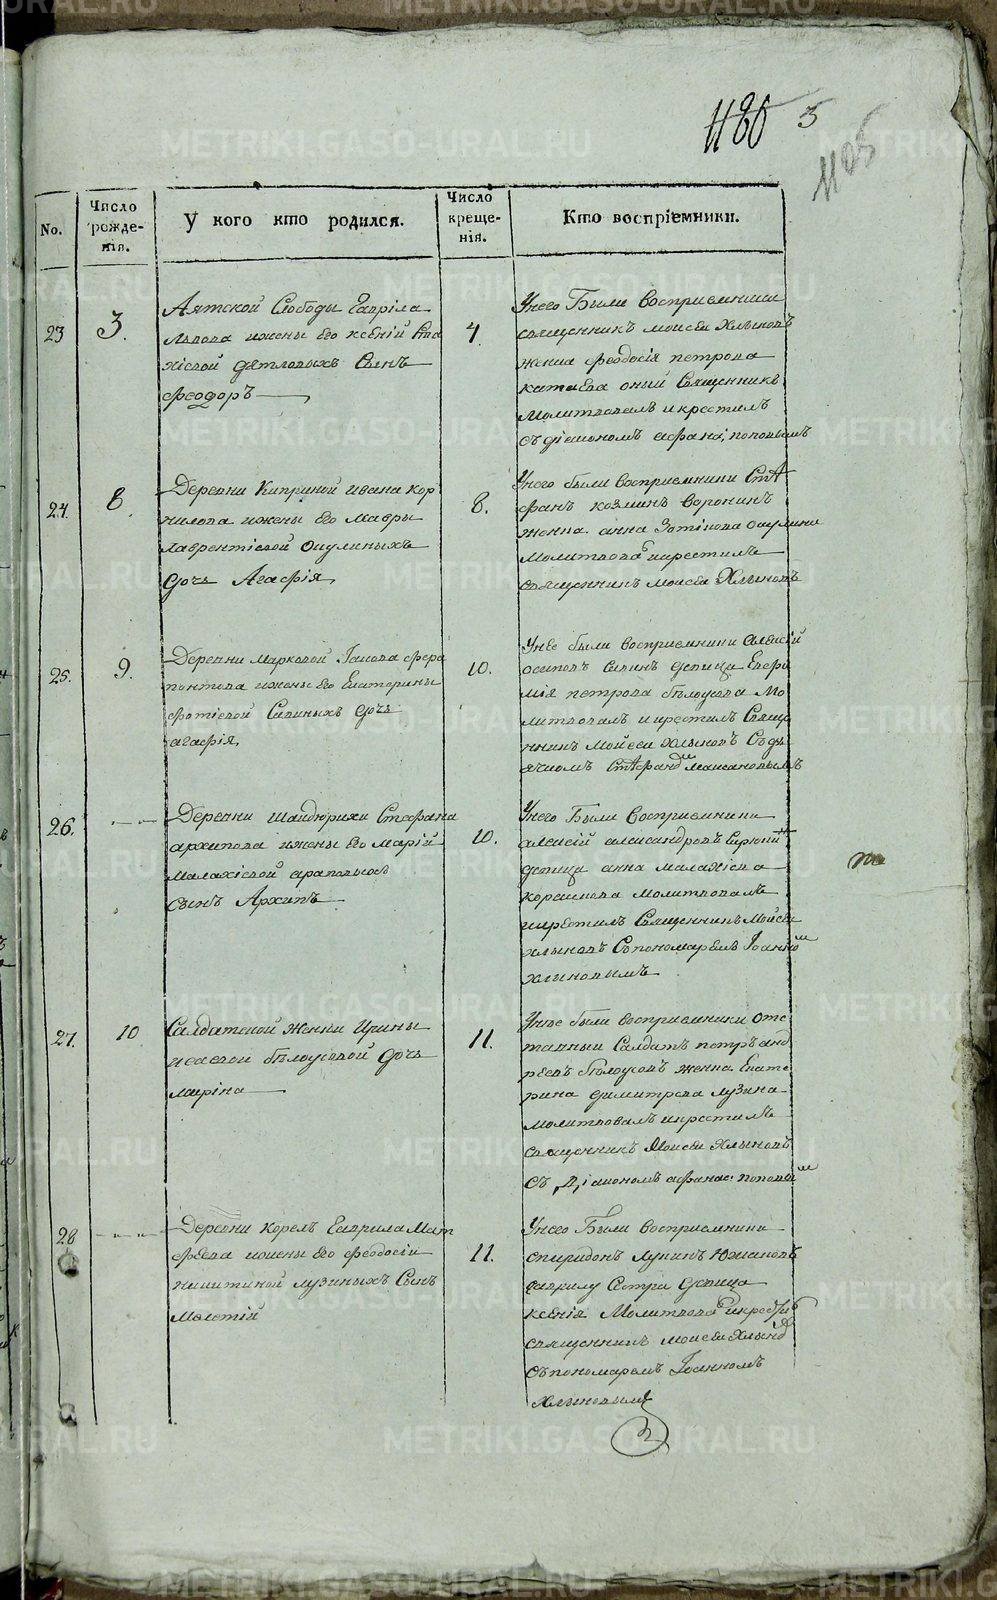 1185 5
1105
No.
Число
рожде-
нія.
У кого кто родился.
Число
креще-
нія.
Кто воспріемники.
23
3.
Аятской Слободы Гавріла
Львова ижены его ксеніи
хіевой дятловыхъ Сынъ
Феодоръ
4.
Унего Были Восприемники
священникъ моисей Хлыновъ
женка феодосія петрова
катаева оный Священникъ
Молитвовалъ и крестилъ
съ діакономъ афана: поповымъ
24.
8.
Деревни Киприной ивана кор
нилова ижены его Мавры
лаврентіевой Окулиныхъ
дочь Агафія
8.
Унего были восприемники Сте
фанъ козминъ воронинъ
женка анна Зотікова окулина
Молитвова икрестилъ
священникъ моисей Хлыновъ
25.
9.
Деревни Марковой Іакова фера
понтова ижены его Екатерины
фотіевой Савиныхъ дочь
агафія
10.
Унее были восприемники алексій
осиповъ Савинъ девица Евфи
мія петрова белоусова Мо
литвовалъ и крестилъ Свяще
нникъ Мойсей хлыновъ Съдь
ячкомъ
26.
Деревни шайдюрихи Стефана
архипова ижены его маріи
Малахіевой араповыхъ
сынъ Архипъ
10.
Унего Были Восприемники
алексій александровъ
девица анна малахіева
корешкова молитвовалъ
икрестилъ Священникъ Мойсей
хлыновъ Съпономаремъ Іоанно м
хлыновымъ
27.
10
Салдатской Женки Ирины
исаевой белоусовой дочь
маріна
11.
Унее были восприемники отс
тавный Салдатъ петръ анд
реевъ белоусовъ женка Екате
рина димитрева лузина
молитвовалъ икрестилъ
священникъ Моисей Хлыновъ
съ діакономъ афанас: поповы м
28
Деревни корелъ гаврила Мат
феева ижены его феодосіи
никитиной лузиныхъ Сынъ
Мелетій
11.
Унего Были восприемники
спиридонъ лукинъ Южаковъ
гаврилу Сестра девица
ксенія Молитвова икрестилъ
священникъ моисей Хлыновъ
съпономаремъ Іоанномъ
хлыновымъ
METRIKI.GASO-URAL.RU